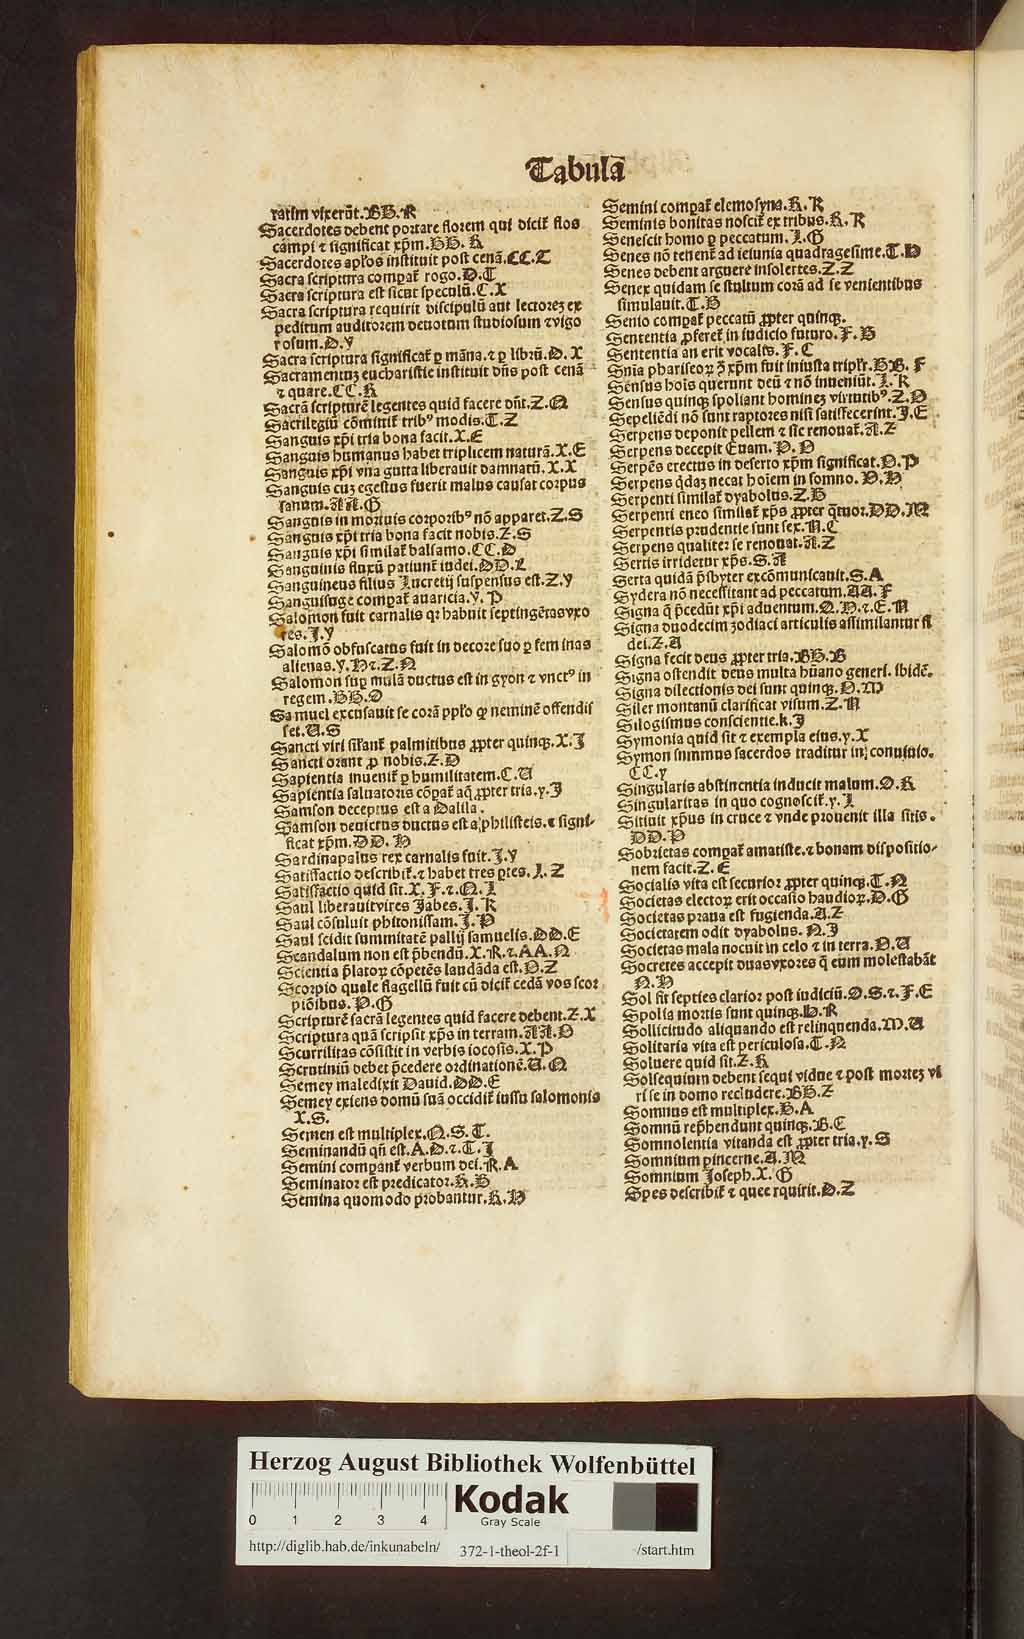 Tabulā
ratim vixerūt.BB.R
Sacerdotes debent portare florem qui diciť flos
campi ⁊ significat xp̄m.HH.K
Sacerdotes apl'os instituit post cenā.CC.T
Sacra scriptura compať rogo.D.T
Sacra scriptura est sicut speculū.C.X
Sacra scriptura requirit discipulū aut lectoreꝫ ex
peditum auditorem deuotum studiosum ⁊vigo
rosum.D.Y
Sacra scriptura significať ꝑ māna.⁊ ꝑ librū.D.X
Sacramentuꝫ eucharistie instituit dn̄s post cenā
⁊ quare.CC.K
Sacrā scripturē legentes quid facere dn̄t.Z.Q
Sacrilegiū cōmittiť tribꝰ modis.T.Z
Sanguis xp̄i tria bona facit.X.E
Sanguis humanus habet triplicem naturā.X.E
Sanguis xp̄i vna gutta liberauit damnatū.X.X
Sanguis cuꝫ egestus fuerit malus causat corpus
sanum.AA.G
Sanguis in mortuis corporibꝰ nō apparet.Z.S
Sanguis xp̄i tria bona facit nobis.Z.S
Sanguis xp̄i similať balsamo.CC.D
Sanguinis fluxū patiunť iudei.DD.L
Sanguineus filius Lucretij suspensus est.Z.Y
Sanguisuge compať auaricia.Y.P
Salomon fuit carnalis qꝛ habuit septingētasvxo
res.J.Y
Salomō obfuscatus fuit in decore suo ꝑ feminas
alienas.Y.H⁊.Z.N
Salomon suꝑ mulā ductus est in gyon ⁊ vnctꝰ in
regem.BB.O
Samuel excusauit se corā pp̄lo ꝙ neminē offendis
set.U.S
Sancti viri silanť palmitibus ꝓpter quinqꝫ.X.J
Sancti orant ꝓ nobis.Z.D
Sapientia inueniť ꝑ humilitatem.C.U
Sapientia saluatoris cōpať aq̄ ꝓpter tria.y.J
Samson deceptus est a Dalila.
Samson deuictus ductus est a philisteis.⁊ signi-
ficat xp̄m.DD.H
Sardinapalus rex carnalis fuit.J.Y
Satisfactio describiť.⁊ habet tres ꝑtes.J.Z
Satisfactio quid sit.X.F.⁊.Q.J
Saul liberauitvires Jabes.J.K
Saul cōsuluit phitonissam.J.P
Saul scidit summitatē pallij samuelis.DD.E
Scandalum non est p̄bendū.X.R.⁊.AA.N
Scientia p̄latoꝝ cōpetēs laudāda est.D.Z
Scorpio quale flagellū fuit cū diciť cedā vos scor
piōibus.P.G
Scripturē sacrā legentes quid facere debent.Z.X
Scriptura quā scripsit xp̄s in terram.AA.D
Scurrilitas cōsistit in verbis iocosis.X.P
Scrutiniū debet p̄cedere ordinationē.U.Q
Semey maledixit Dauid.DD.E
Semey exiens domū suā occidiť iussu salomonis
X.S.
Semen est multiplex.Q.S.T.
Seminandū qn̄ est.A.D.⁊.T.J
Semini companť verbum dei.R.A
Seminator est predicator.K.B
Semina quomodo probantur.R.H
Semini compať elemosyna.R.K
Seminis bonitas nosciť ex tribus.R.K
Senescit homo ꝑ peccatum.J.G
Senes nō tenenť ad ieiunia quadragesime.T.D
Senes debent arguere insolentes.Z.Z
Senex quidam se stultum corā ad se venientibus
simulauit.T.B
Senio compať peccatū ꝓpter quinqꝫ.
Sententia ꝓfereť in iudicio futuro.F.B
Sententia an erit vocalis.F.C
Sn̄ia phariseoꝝ ꝯ̄ xp̄m fuit iniusta triplr̄.BB.F
Sensus hoīs querunt deū ⁊ nō inueniūt.J.K
Sensus quinqꝫ spoliant homineꝫ virtutibꝰ.Z.D
Sepeliēdi nō sunt raptores nisi satisfecerint.J.E
Serpens deponit pellem ⁊ sic renouať.A.Z
Serpens decepit Euam.P.D
Serpēs erectus in deserto xp̄m significat.D.P
Serpens q̄daꝫ necat hoīem in somno.D.H
Serpenti similať dyabolus.Z.B
Serpenti eneo similať xp̄s ꝓpter q̄tuor.DD.M
Serpentis prudentie sunt sex.N.C
Serpens qualiter se renouat.A.Z
Sertis irridetur xp̄s.S.A
Serta quidā p̄sbyter excōmunicauit.S.A
Sydera nō necessitant ad peccatum.AA.F
Signa q̄ p̄cedūt xp̄i aduentum.Q.H.⁊.E.N
Signa duodecim zodiaci articulis assimilantur fi
dei.Z.A
Signa fecit deus ꝓpter tria.BB.B
Signa ostendit deus multa hūano generi. ibidē.
Signa dilectionis dei sunt quinqꝫ.D.M
Siler montanū clarificat visum.Z.N
Silogismus conscientie.k.J
Symonia quid sit ⁊ exempla eius.y.X
Symon summus sacerdos traditur in conuiuio.
CC.y
Singularis abstinentia inducit malum.O.R
Singularitas in quo cognosciť.y.J
Sitiuit xp̄us in cruce ⁊ vnde prouenit illa sitis.
DD.P
Sobrietas compať amatiste.⁊ bonam dispositio-
nem facit.Z.E
Socialis vita est securior ꝓpter quinqꝫ.T.N
Societas electoꝝ erit occasio gaudioꝝ.D.G
Societas praua est fugienda.A.Z
Societatem odit dyabolus.N.J
Societas mala nocuit in celo ⁊ in terra.D.U
Socretes accepit duasvxores q̄ eum molestabāt
N.H
Sol fit septies clarior post iudiciū.O.S.⁊.F.E
Spolia mortis sunt quinqꝫ.D.R
Sollicitudo aliquando est relinquenda.M.U
Solitaria vita est periculosa.T.N
Soluere quid sit.Z.K
Solsequium debent sequi vidue ⁊ post morteꝫ vi
ri se in domo recludere.BB.Z
Somnus est multiplex.B.A
Somnū rep̄hendunt quinqꝫ.B.C
Somnolentia vitanda est ꝓpter tria.y.S
Somnium pincerne.A.M
Somnium Joseph.X.G
Spes describiť ⁊ quee rquirit.D.Z
Herzog August Bibliothek Wolfenbüttel
0 1 2 3 4
Kodak
Gray Scale
http://diglib.hab.de/inkunabeln/ 372-1-theol-2f-1 /start.htm